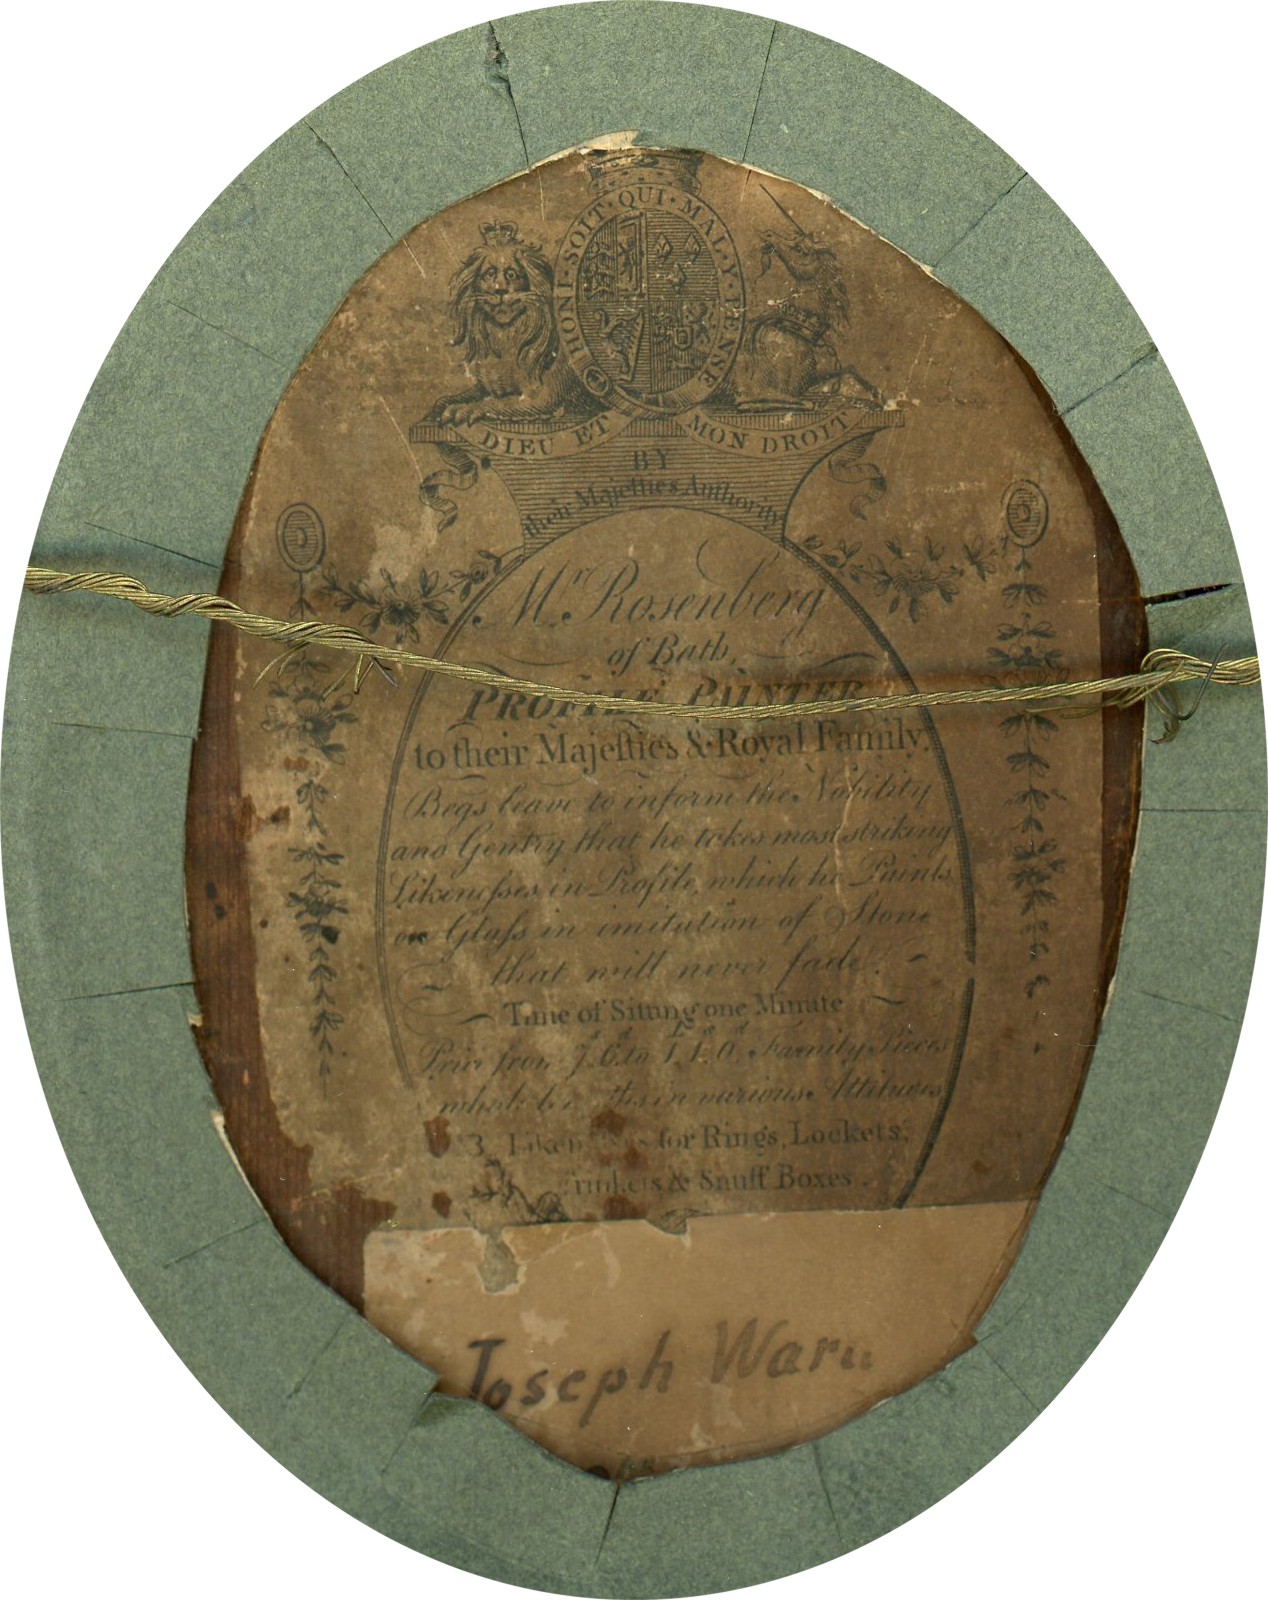 HONI·SOIT·QUI·MAL·Y·PENSE
DIEU ET MON DROIT
BY
their Majesties Authority
Mr. Rosenberg
of Bath,
PROFILE PAINTER
to their Majeſties & Royal Family,
Begs leave to inform the Nobility
and Gentry, that he takes most striking
Likeneſses in Profile, which he Paints
on Glaſs in imitation of Stone
that will never fade.
Time of Sitting one Minute
Price from 7s. 6d. to £1. 1s. 0d. Family Pieces
whole lengths in various Attitudes
Likenesses for Rings, Lockets,
Trinkets & Snuff Boxes.
Joseph